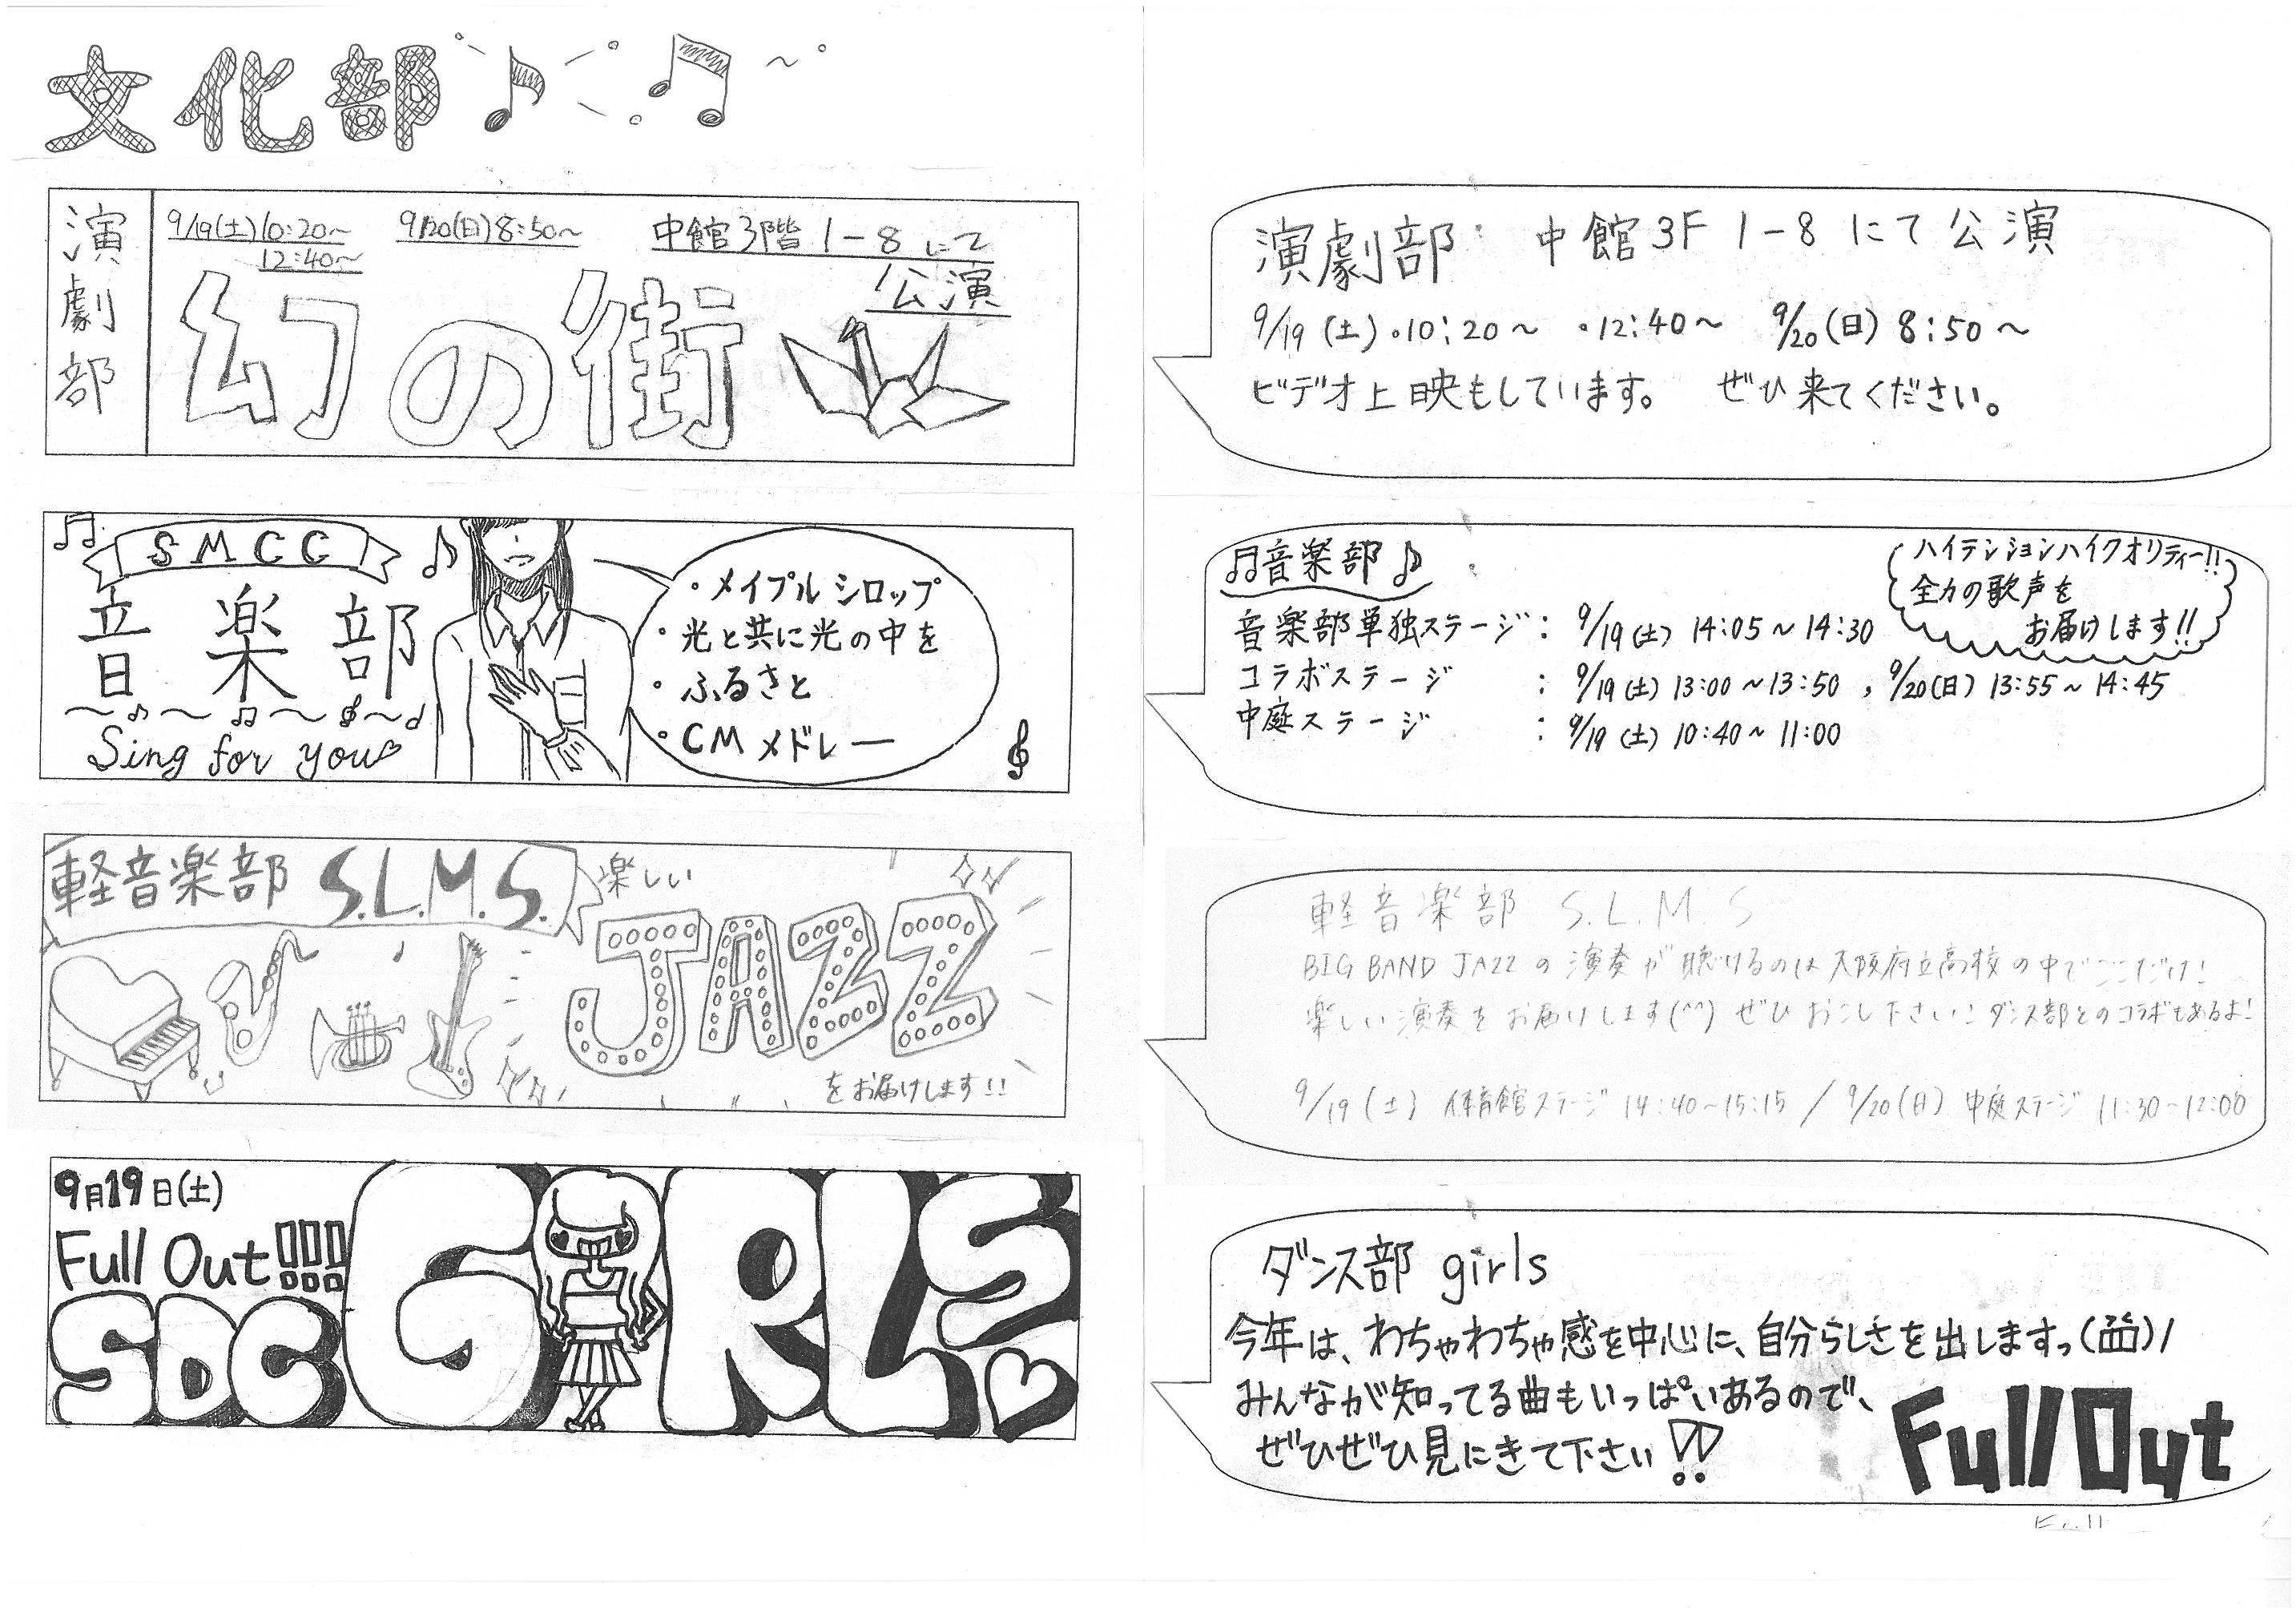 文化部
演劇部
9/19(土)10:20〜
12:40〜
9/20(日)8:50〜
中館3階 1-8 にて
公演
幻の街
演劇部 中館3F 1-8 にて公演
9/19(土)・10:20〜 ・12:40〜 9/20(日) 8:50〜
ビデオ上映もしています。 ぜひ来てください。
SMCC
音楽部
Sing for you
・メイプルシロップ
・光と共に光の中を
・ふるさと
・CMメドレー
音楽部
ハイテンションハイクオリティー!!
全力の歌声を
お届けします!!
音楽部単独ステージ: 9/19(土) 14:05〜14:30
コラボステージ : 9/19(土) 13:00〜13:50 , 9/20(日) 13:55〜14:45
中庭ステージ : 9/19(土) 10:40〜11:00
軽音楽部 S.L.M.S.
楽しい
JAZZ
をお届けします!!
軽音楽部 S.L.M.S
BIG BAND JAZZの演奏が聴けるのは大阪府立高校の中でここだけ!
楽しい演奏をお届けします(^^) ぜひおこし下さい! ダンス部とのコラボもあるよ!
9/19(土) 体育館ステージ 14:40〜15:15 / 9/20(日) 中庭ステージ 11:30〜12:00
9月19日(土)
Full Out!!!
SDC GIRLS
ダンス部 girls
今年は、わちゃわちゃ感を中心に、自分らしさを出しますっ
みんなが知ってる曲もいっぱいあるので、
ぜひぜひ見にきて下さい!!
Full Out
Full